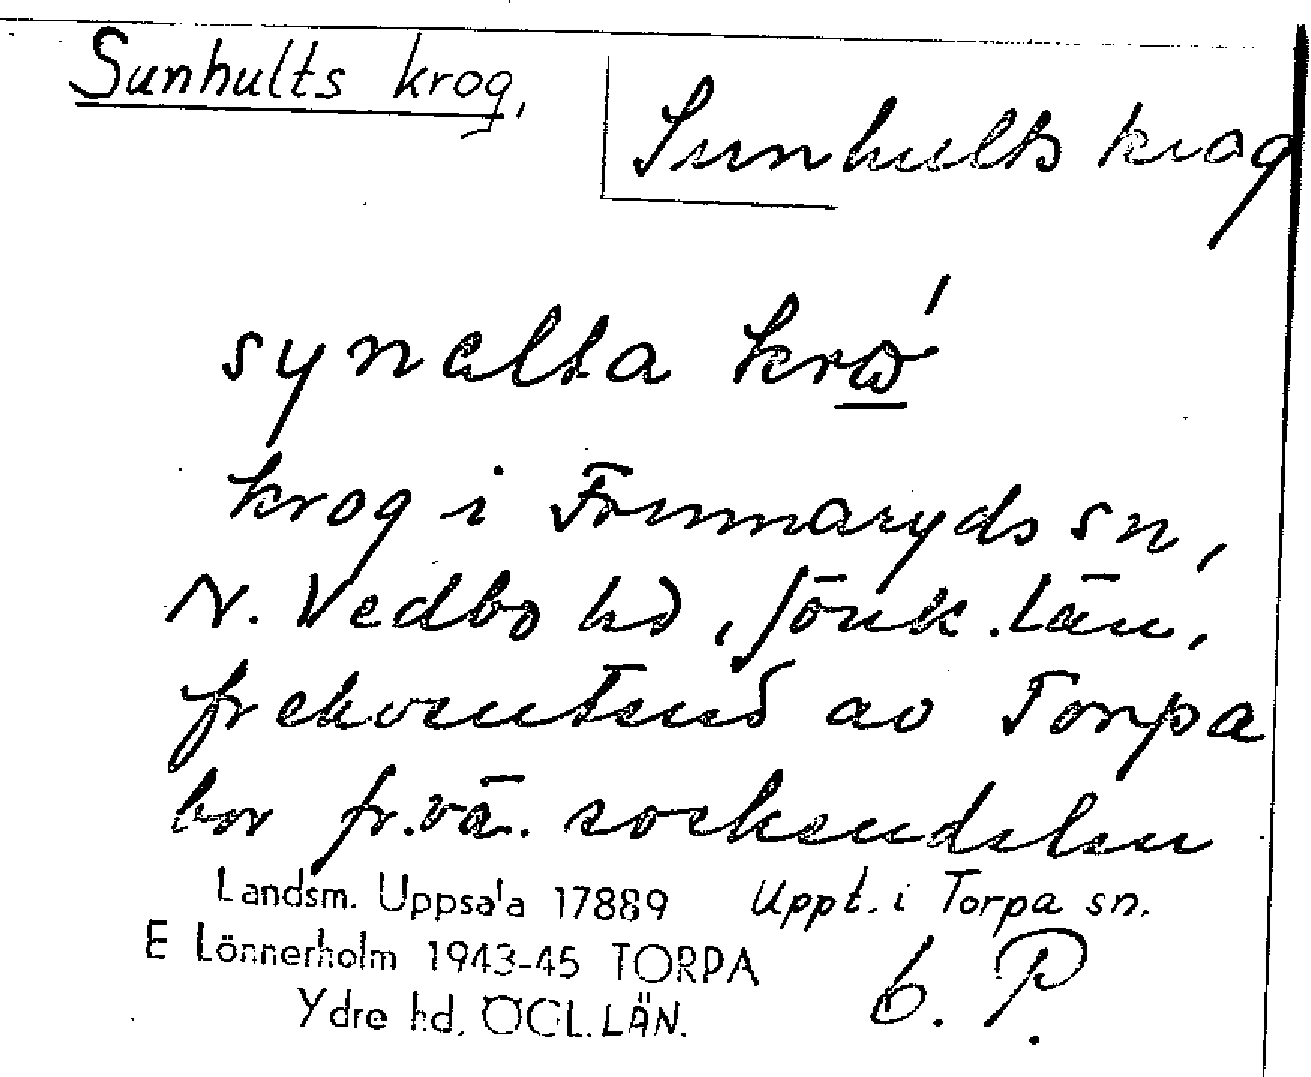 Sunhults krog,
Sunhults krog
synalta
krog i Frinnaryds sn,
N. Vedbo hd, Jönk. län,
frekventend av Torpa
bor fr. vä. sockendelen
Landsm. Uppsala 17889 Uppt. i Torpa sn.
E Lönnerholm 1943-45 TORPA
Ydre hd. ÖGL. LÄN.